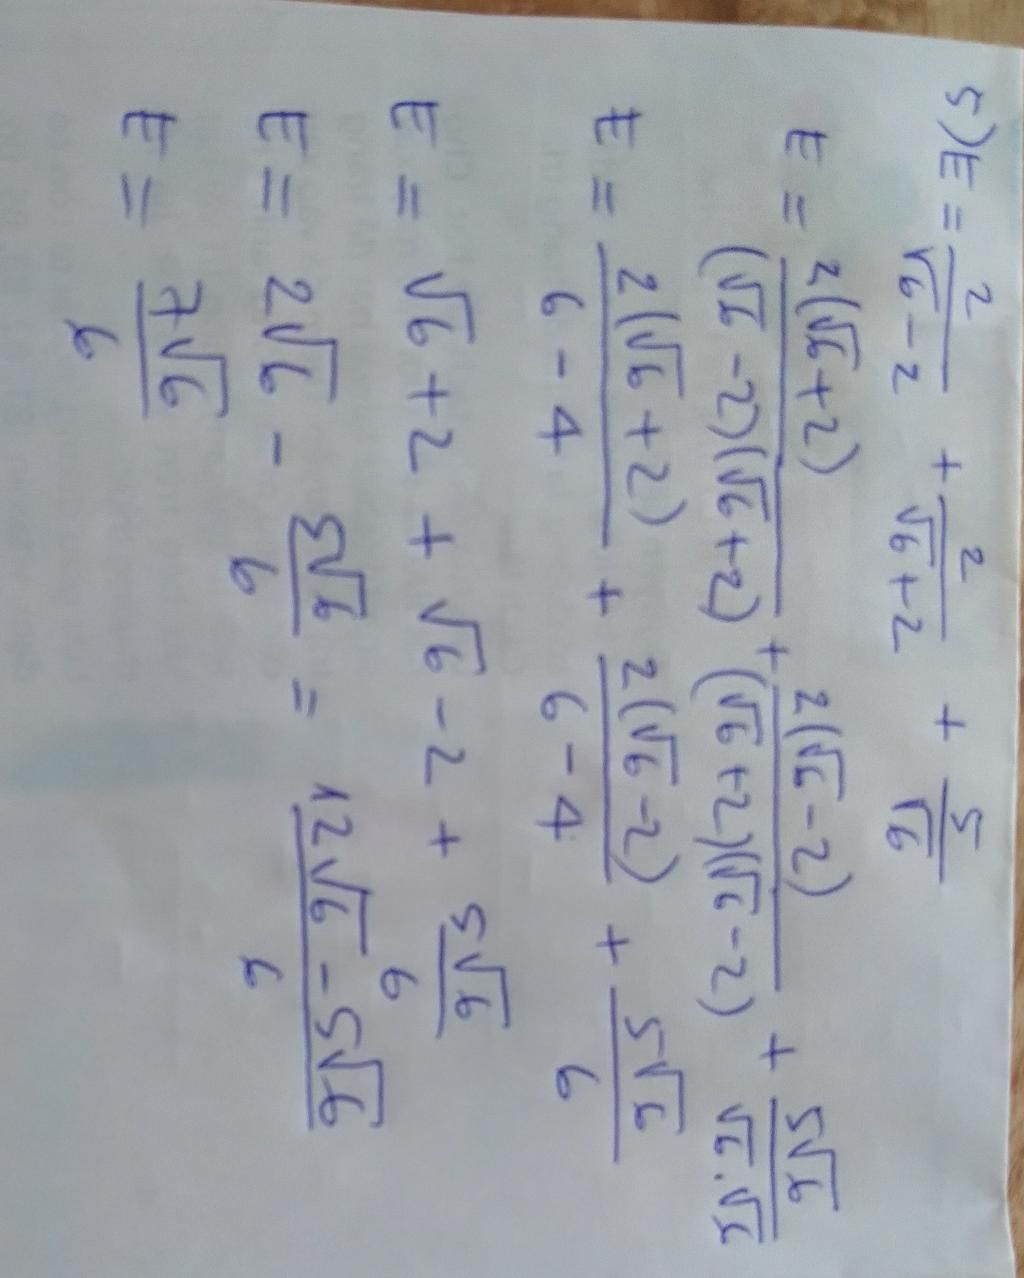 5) E = 2/(√6 - 2) + 2/(√6 + 2) + 5/√6
E = 2(√6 + 2)/((√6 - 2)(√6 + 2)) + 2(√6 - 2)/((√6 + 2)(√6 - 2)) + 5√6/(√6 . √6)
E = 2(√6 + 2)/(6 - 4) + 2(√6 - 2)/(6 - 4) + 5√6/6
E = √6 + 2 + √6 - 2 + 5√6/6
E = 2√6 - 5√6/6 = (12√6 - 5√6)/6
E = 7√6/6